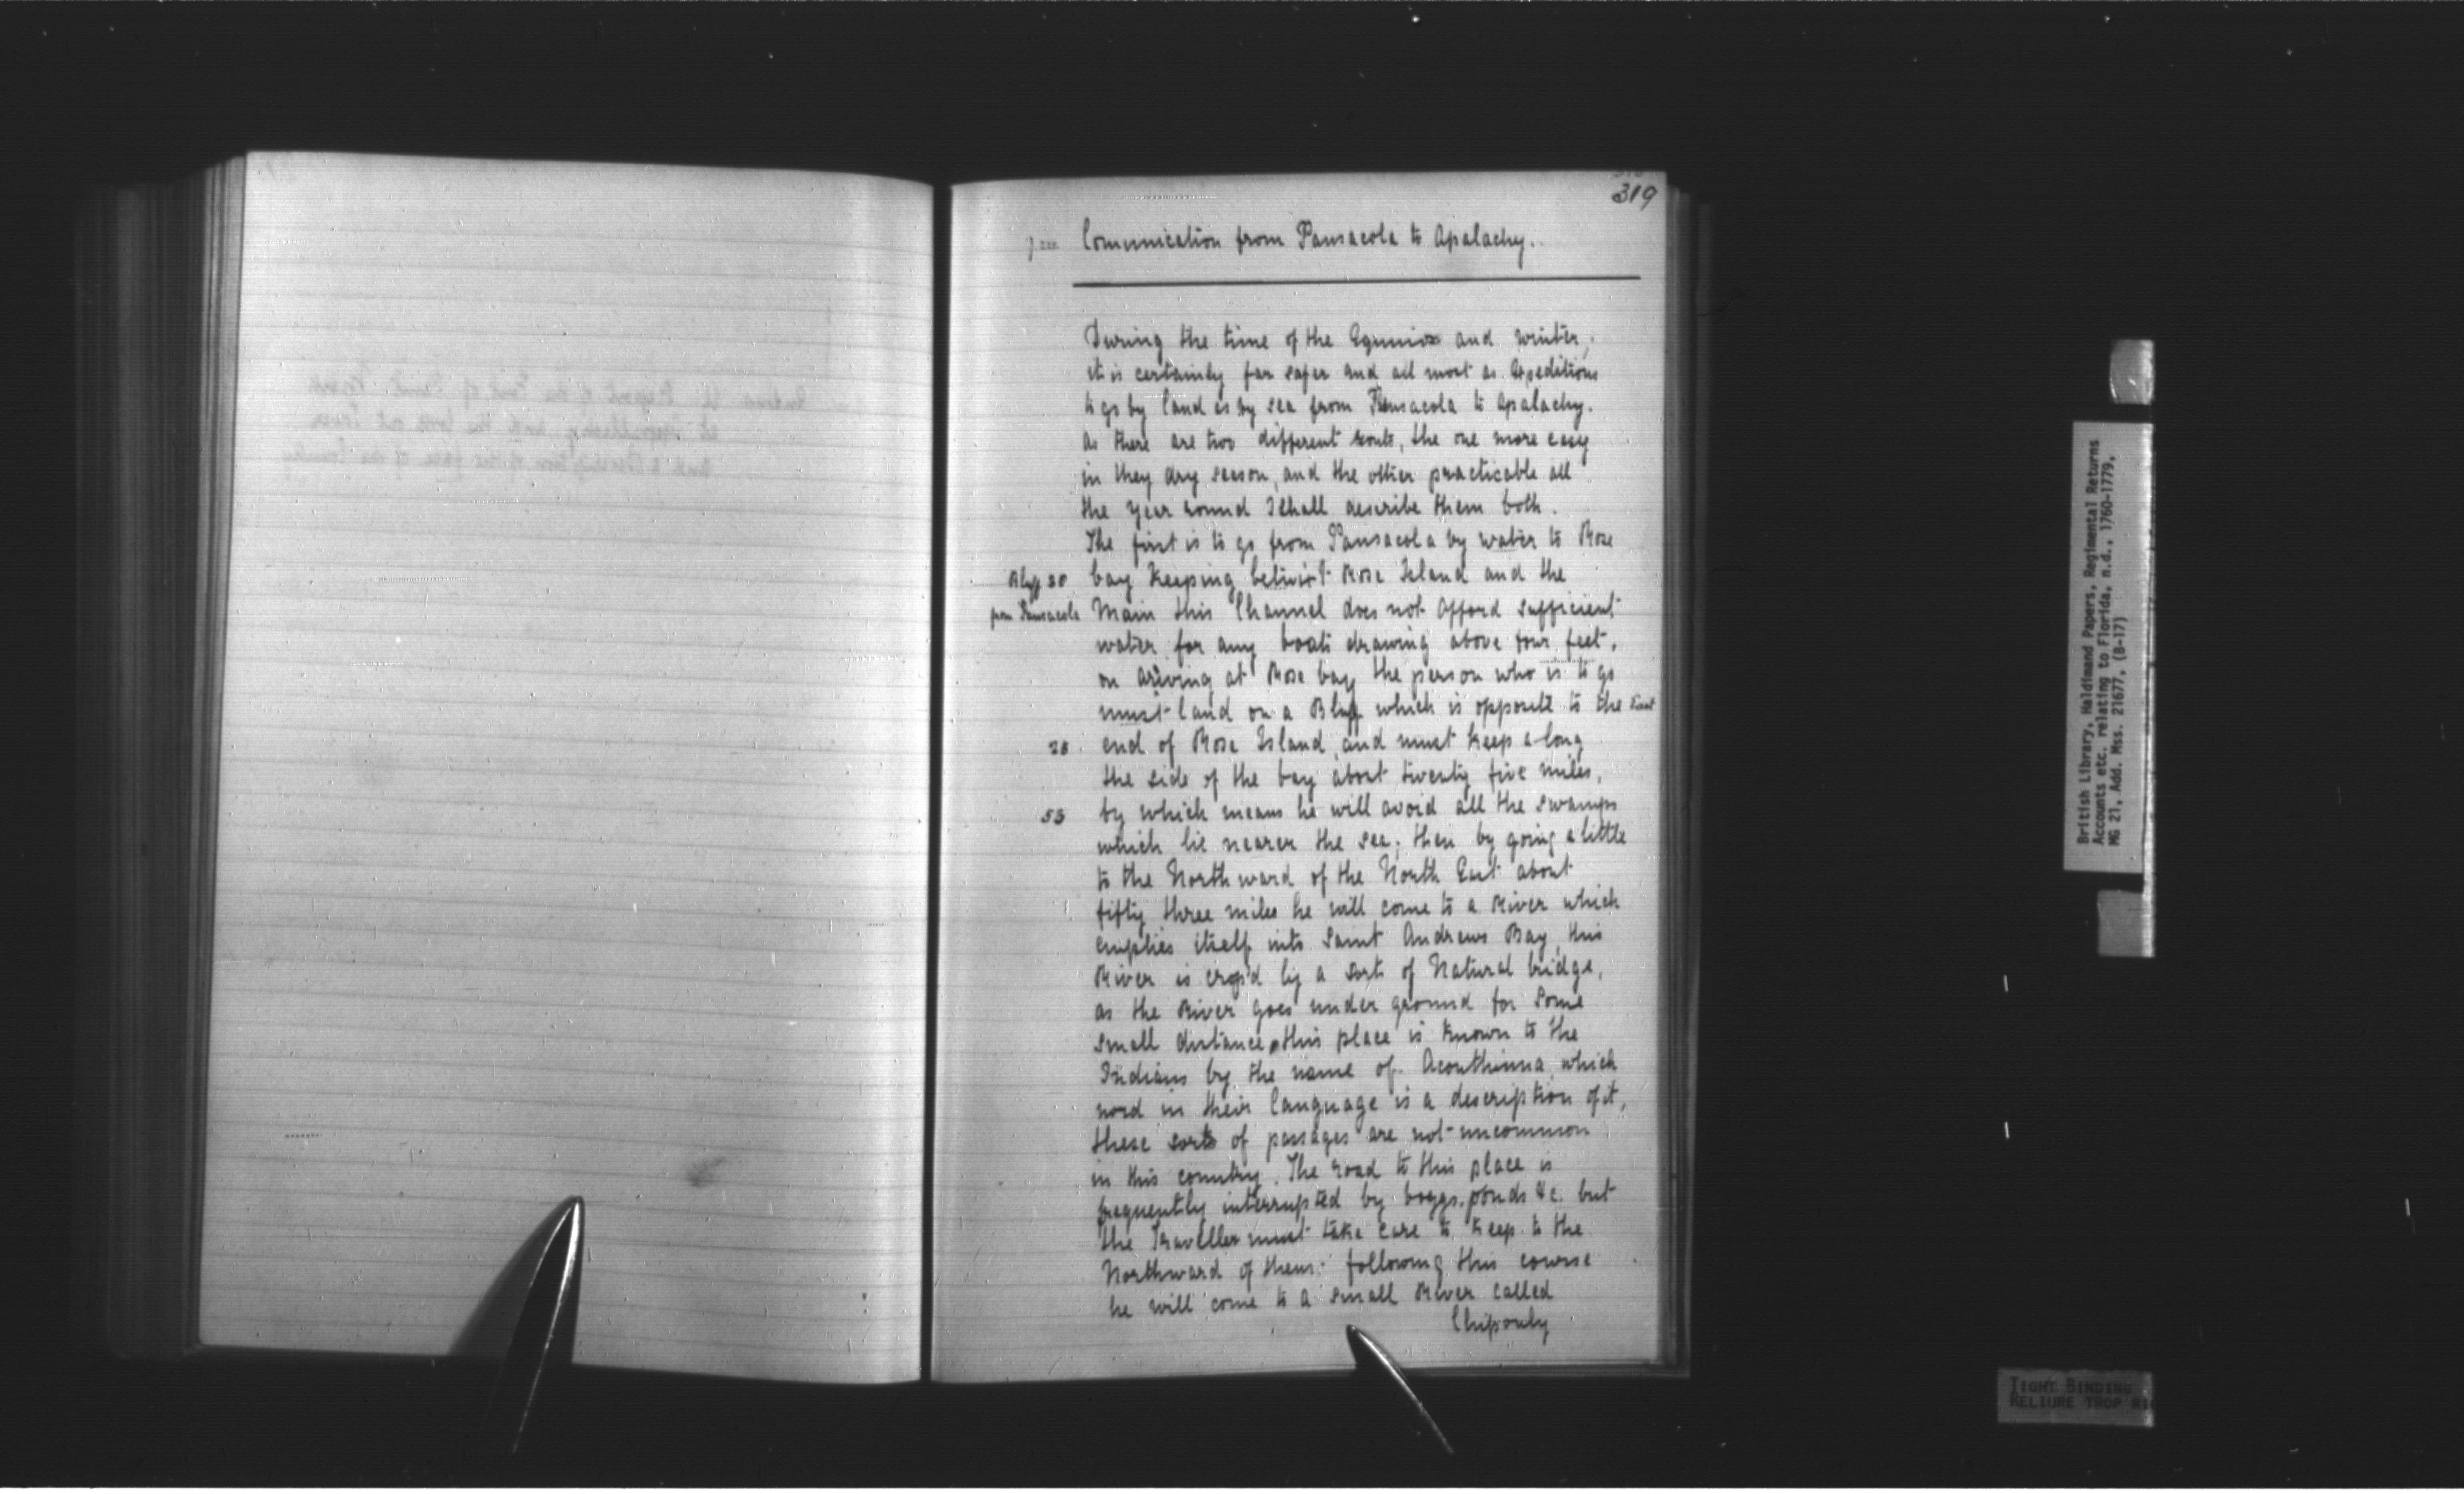 319
Comunication from Pansacola to Apalachy.
During the time of the Equniox and winter,
it is certainly far safer and all most as Expeditions
to go by land as by sea from Pansacola to Apalachy.
as there are two different routs, the one more easy
in they dry season, and the other practicable all
the year round I shall describe them both.
The first is to go from Pansacola by water to Rose
Bluff 30 bay Keeping betwixt Rose Island and the
from Pansacola Main this Channel does not Afford sufficient
water for any boats drawing above four feet.
on ariving at Rose bay the person who is to go
must land on a Bluff which is opposite to the East
25 end of Rose Island and must keep a long
the side of the bay about twenty five miles,
53 by which means he will avoid all the swamps
which lie nearer the sea; then by going a little
to the Northward of the North East about
fifty three miles he will come to a River which
empties itself into Saint Andrews Bay this
River is crop'd by a sort of Natural bridge,
as the River goes under ground for some
small distance, this place is known to the
Indians by the name of Aconthinna, which
word in their language is a description of it,
these sorts of passages are not uncommon
in this country. The road to this place is
frequently interrupted by boggs, ponds &c. but
the Traveller must take care to keep to the
Northward of them: following this course
he will come to a small River called
Chipouly
British Library, Haldimand Papers, Regimental Returns
Accounts etc. relating to Florida, n.d., 1760-1779,
MG 21, Add. Mss. 21677, (B-17)
TIGHT BINDING
RELIURE TROP